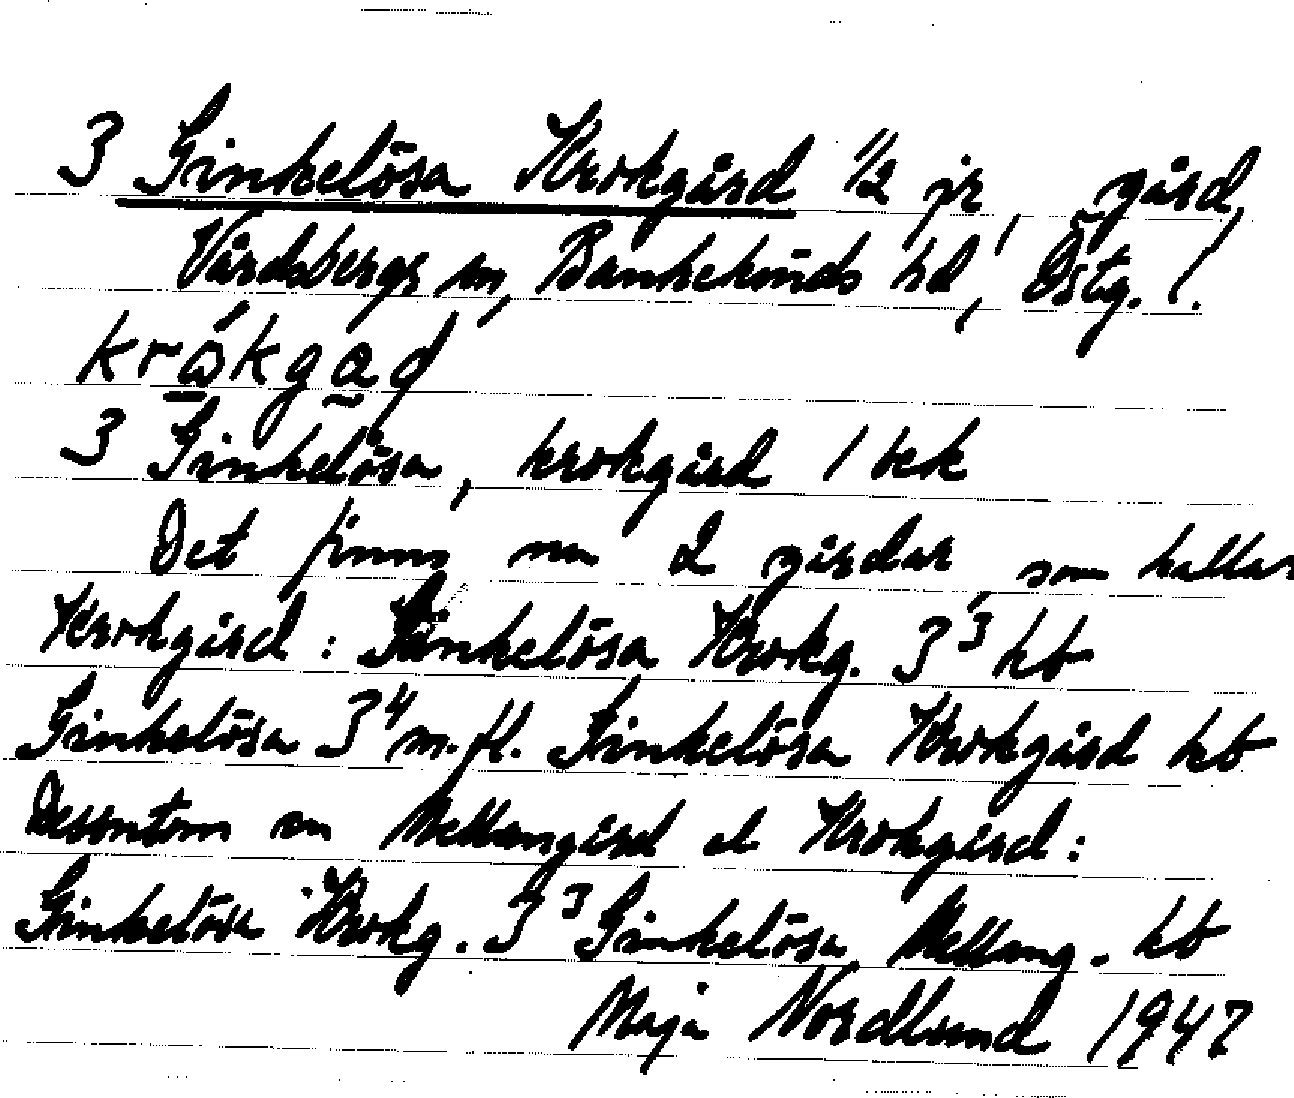 3 Ginkelösa Krokgård 1/2 jr, gård,
Vårdsbergs sn, Bankekinds hd, Östg. l.
krókgad
3 Ginkelösa, krokgård 1 bek
Det finns nu 2 gårdar, som kallas
Krokgård: Ginkelösa Krokg. 3³ hb
Ginkelösa 3⁴ m.fl. Ginkelösa Krokgård hb
Dessutom en Mellangård el. Krokgård:
Ginkelösa Krokg. 3³ Ginkelösa Mellang. hb
Maja Nordlund 1947